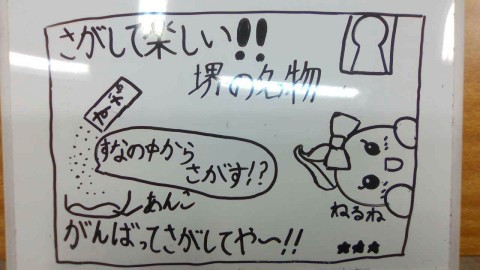 さがして楽しい!!
堺の名物
すなの中から
さがす!?
あんこ
ねるね
がんばってさがしてや～!!